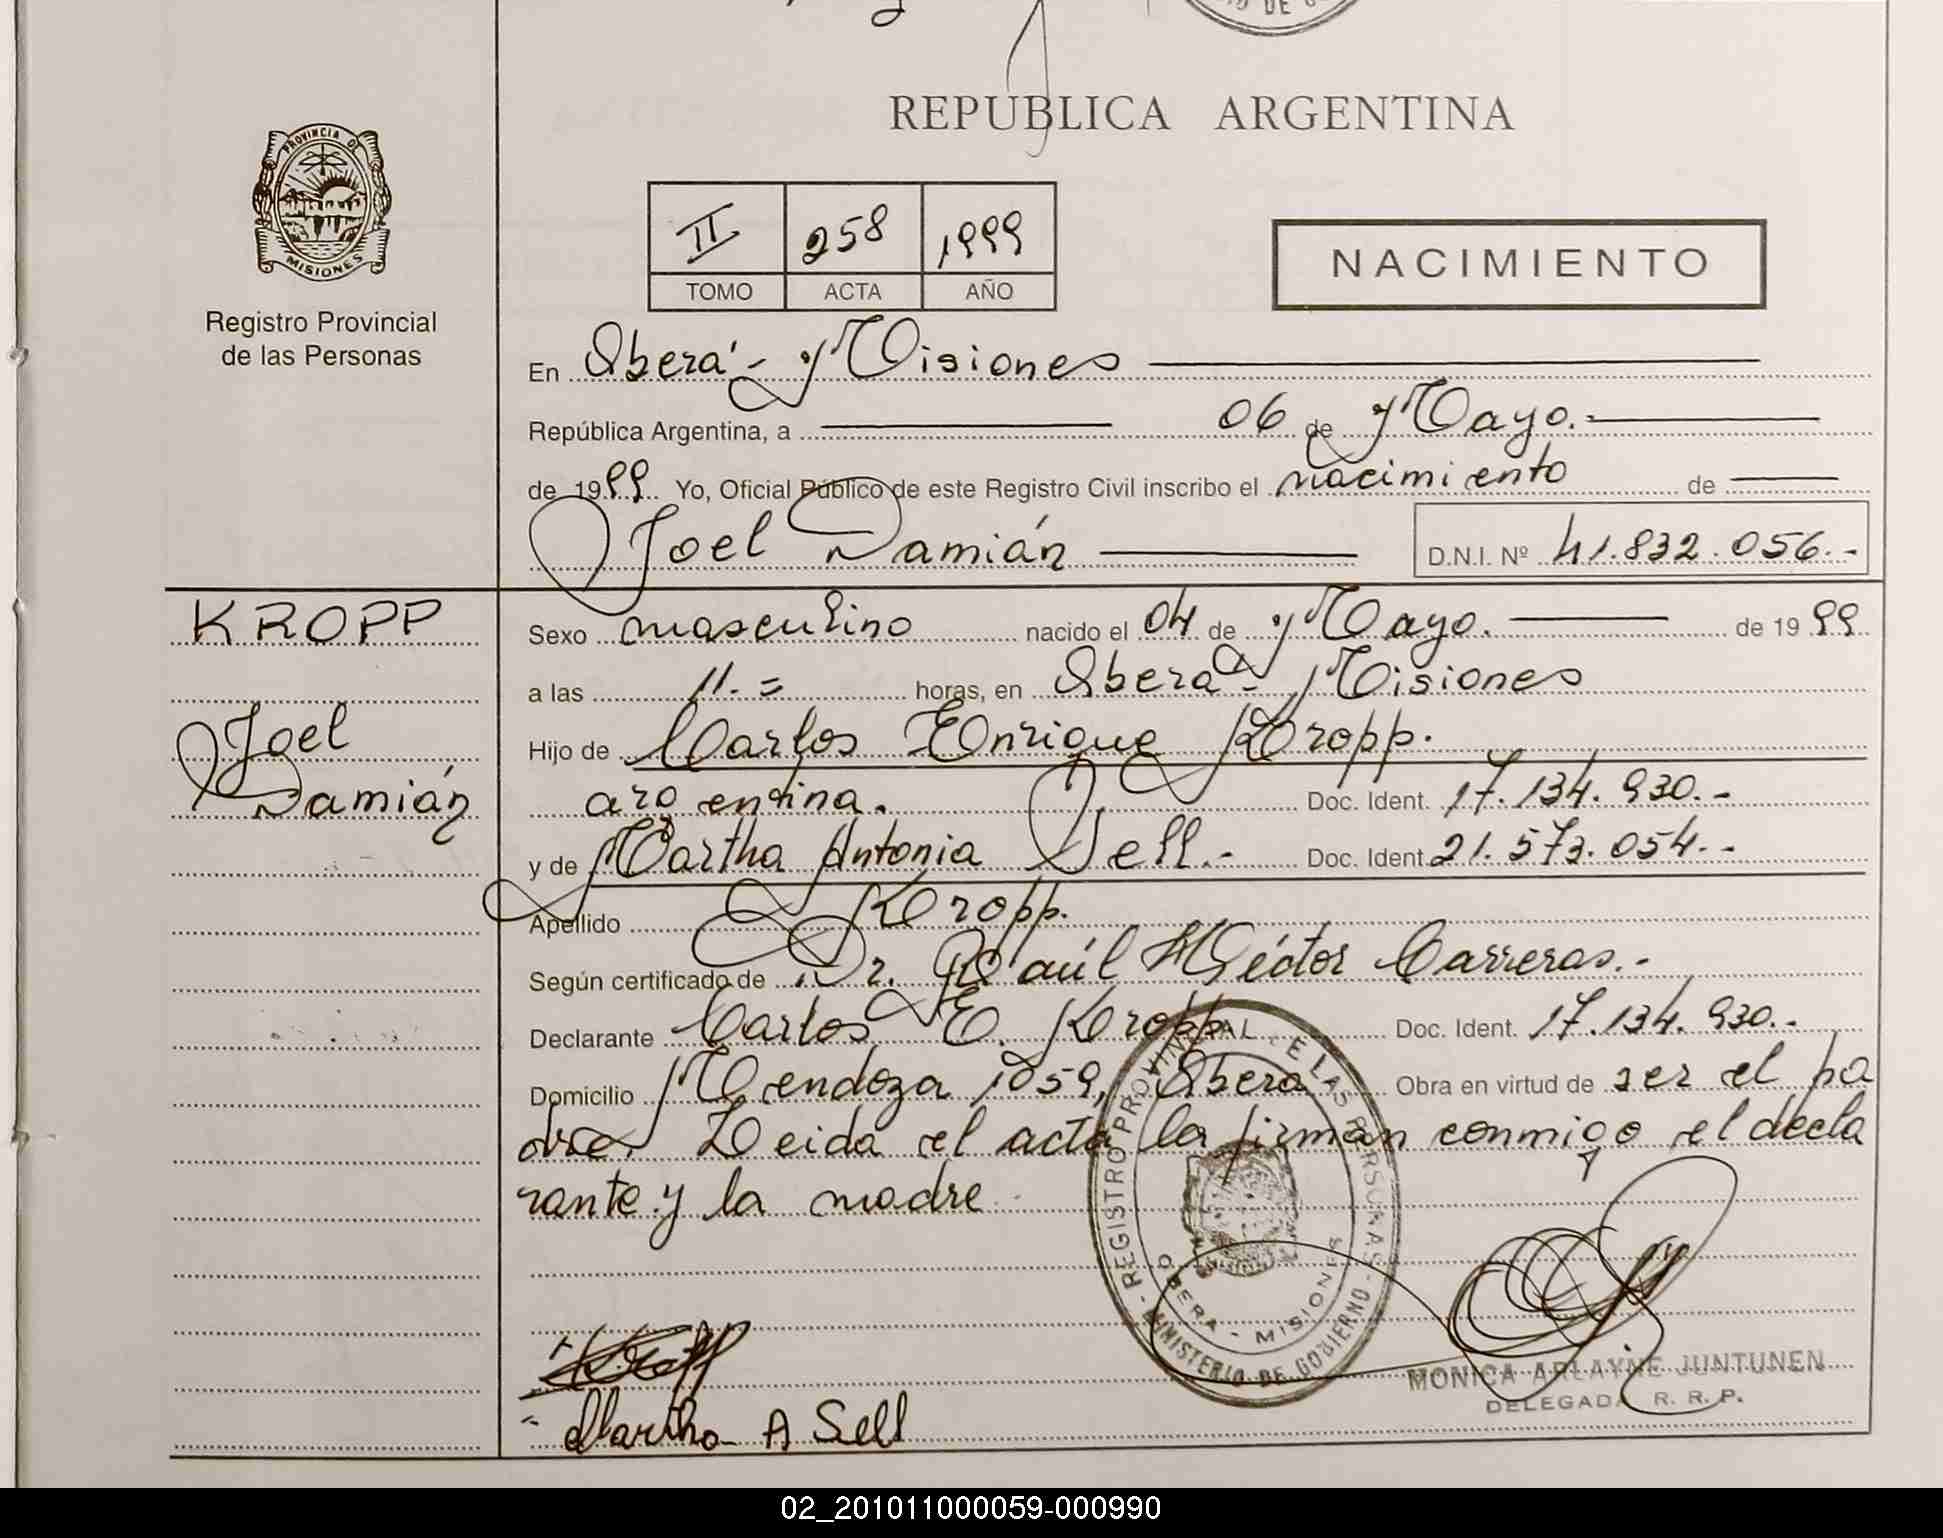 IO DE GO
REPUBLICA ARGENTINA
PROVINCIA DE
MISIONES
Registro Provincial
de las Personas
II 258 1999
TOMO ACTA AÑO
NACIMIENTO
En Oberá - Misiones
República Argentina, a 06 de Mayo.
de 1999 Yo, Oficial Público de este Registro Civil inscribo el nacimiento de
Joel Damián D.N.I. Nº 41.832.056.-
KROPP
Joel
Damián
Sexo masculino nacido el 04 de Mayo. de 1999
a las 11.= horas, en Oberá - Misiones
Hijo de Carlos Enrique Kropp.
argentina. Doc. Ident. 17.134.930.-
y de Martha Antonia Sell.- Doc. Ident 21.573.054.-
Apellido Kropp.
Según certificado de Dr. Raúl Héctor Carreras.-
Declarante Carlos E. Kropp Doc. Ident. 17.134.930.-
Domicilio Mendoza 1059, Oberá- Obra en virtud de ser el pa
dre. Leida el acta la firman conmigo el decla
rante y la madre
REGISTRO PROVINCIAL DE LAS PERSONAS - MINISTERIO DE GOBIERNO -
OBERA - MISIONES
Kropp
Martha A Sell
MONICA ARLAYNE JUNTUNEN
DELEGADA R. R. P.
02_201011000059-000990